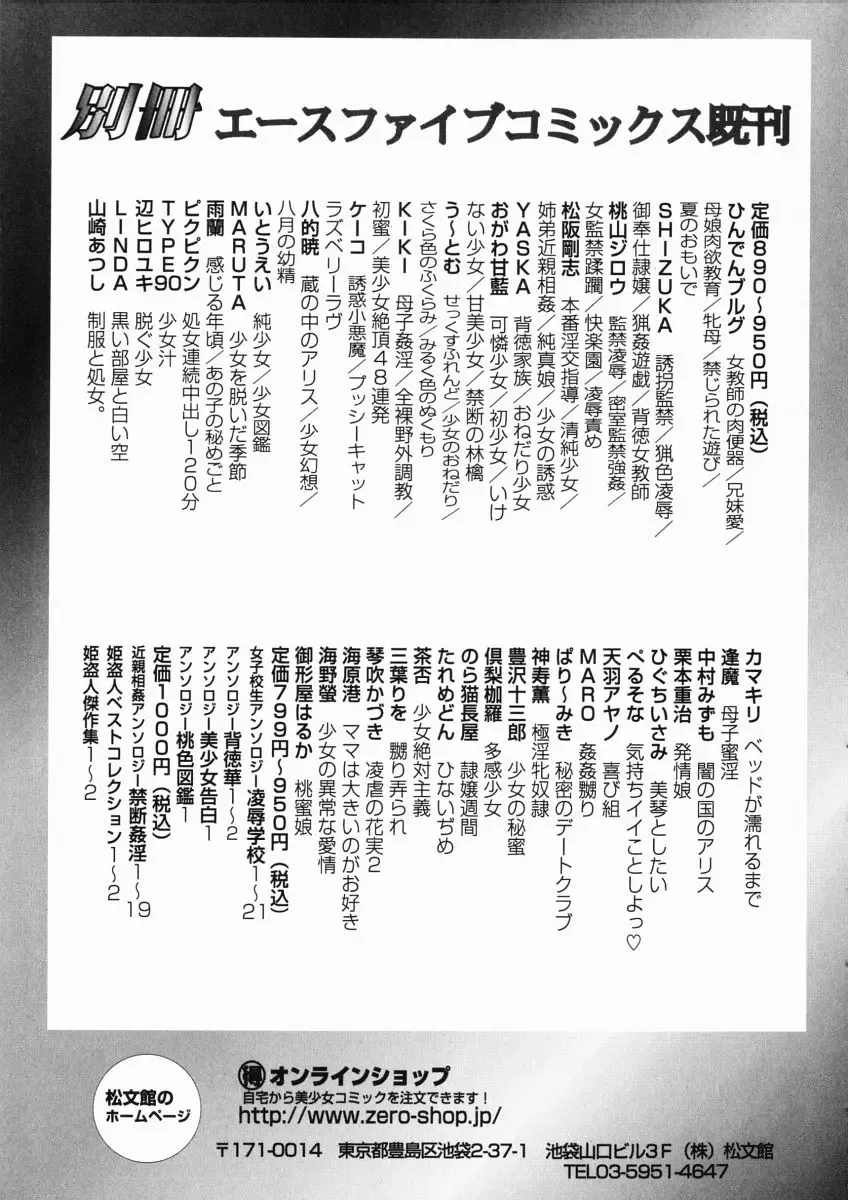 別冊 エースファイブコミックス既刊
定価890〜950円（税込）
ひんでんブルグ 女教師の肉便器／兄妹愛／
母娘肉欲教育／牝母／禁じられた遊び／
夏のおもいで
SHIZUKA 誘拐監禁／猟色凌辱／
御奉仕隷嬢／猟姦遊戯／背徳女教師
桃山ジロウ 監禁凌辱／密室監禁強姦／
女監禁蹂躙／快楽園／凌辱責め
松阪剛志 本番淫交指導／清純少女／
姉弟近親相姦／純真娘／少女の誘惑
YASKA 背徳家族／おねだり少女
おがわ甘藍 可憐少女／初少女／いけ
ない少女／甘美少女／禁断の林檎
う〜とむ せっくすふれんど／少女のおねだり／
さくら色のふくらみ／みるく色のぬくもり
KIKI 母子姦淫／全裸野外調教／
初蜜／美少女絶頂48連発
ケーコ 誘惑小悪魔／プッシーキャット
ラズベリーラヴ
八的暁 蔵の中のアリス／少女幻想／
八月の幼精
いとうえい 純少女／少女図鑑
MARUTA 少女を脱いだ季節
雨蘭 感じる年頃／あの子の秘めごと
ピクピクン 処女連続中出し120分
TYPE90 少女汁
辺ヒロユキ 脱ぐ少女
LINDA 黒い部屋と白い空
山崎あつし 制服と処女。
カマキリ ベッドが濡れるまで
逢魔 母子蜜淫
中村みずも 闇の国のアリス
栗本重治 発情娘
ひぐちいさみ 美琴としたい
ぺるそな 気持ちイイことしよっ♡
天羽アヤノ 喜び組
MARO 姦姦嬲り
ぱり〜みき 秘密のデートクラブ
神寿薫 極淫牝奴隷
豊沢十三郎 少女の秘蜜
倶梨枷羅 多感少女
のら猫長屋 隷嬢週間
たれめどん ひないぢめ
茶否 少女絶対主義
三葉りを 嬲り弄られ
琴吹かづき 凌虐の花実2
海原港 ママは大きいのがお好き
海野螢 少女の異常な愛情
御形屋はるか 桃蜜娘
定価799円〜950円（税込）
女子校生アンソロジー凌辱学校1〜21
アンソロジー背徳華1〜2
アンソロジー美少女告白1
アンソロジー桃色図鑑1
近親相姦アンソロジー禁断姦淫1〜19
定価1000円（税込）
姫盗人ベストコレクション1〜2
姫盗人傑作集1〜2
松文館の
ホームページ
得オンラインショップ
自宅から美少女コミックを注文できます！
http://www.zero-shop.jp/
〒171-0014 東京都豊島区池袋2-37-1 池袋山口ビル3F（株）松文館
TEL03-5951-4647